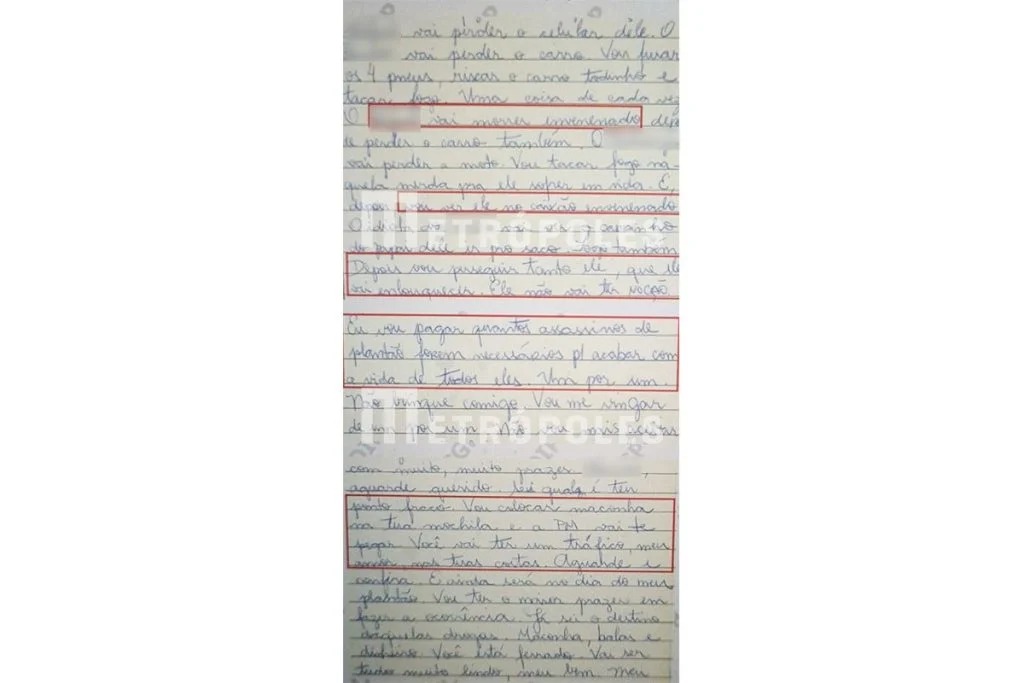 vai perder o celular dele. O
vai perder o carro. Vou furar
os 4 pneus, riscar o carro todinho e
tacar fogo. Uma coisa de cada vez
O vai morrer envenenado depo
e perder o carro também. O
vai perder a moto. Vou tacar fogo na-
quela merda pra ele sofrer em vida. E,
depois vou ver ele no caixão envenenado
O idiota do vai ver o carrinho
do papai dele ir pro saco. Fogo também
Depois vou perseguir tanto ele, que ele
vai enlouquecer. Ele não vai ter NOÇÃO.
Eu vou pagar quantos assassinos de
plantão forem necessários p/ acabar com
a vida de todos eles. Um por um.
Não brinque comigo. Vou me vingar
de um por um. Não vou mais aceitar
METRÓPOLES
METRÓPOLES
com muito, muito prazer ,
aguarde querido. Sei qual é teu
ponto fraco. Vou colocar maconha
na tua mochila e a PM vai te
pegar. Você vai ter um tráfico, meu
amor, nas tuas costas. Aguarde e
confira. E ainda será no dia do meu
plantão. Vou ter o maior prazer em
fazer a ocorrência. Já sei o destino
daquelas drogas. Maconha, balas e
dinheiro. Você está ferrado. Vai ser
tudo muito lindo, meu bem. Meu